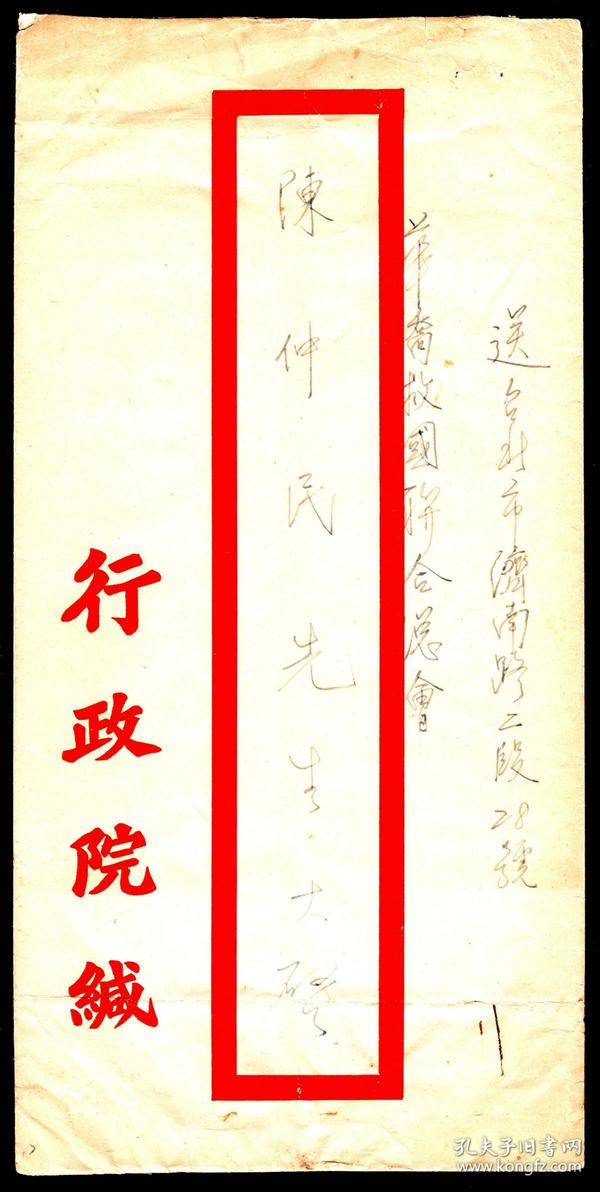 送台北市濟南路二段28號
華裔救國聯合总會
陳仲民先生大啓
行政院緘
孔夫子旧书网
www.kongfz.com